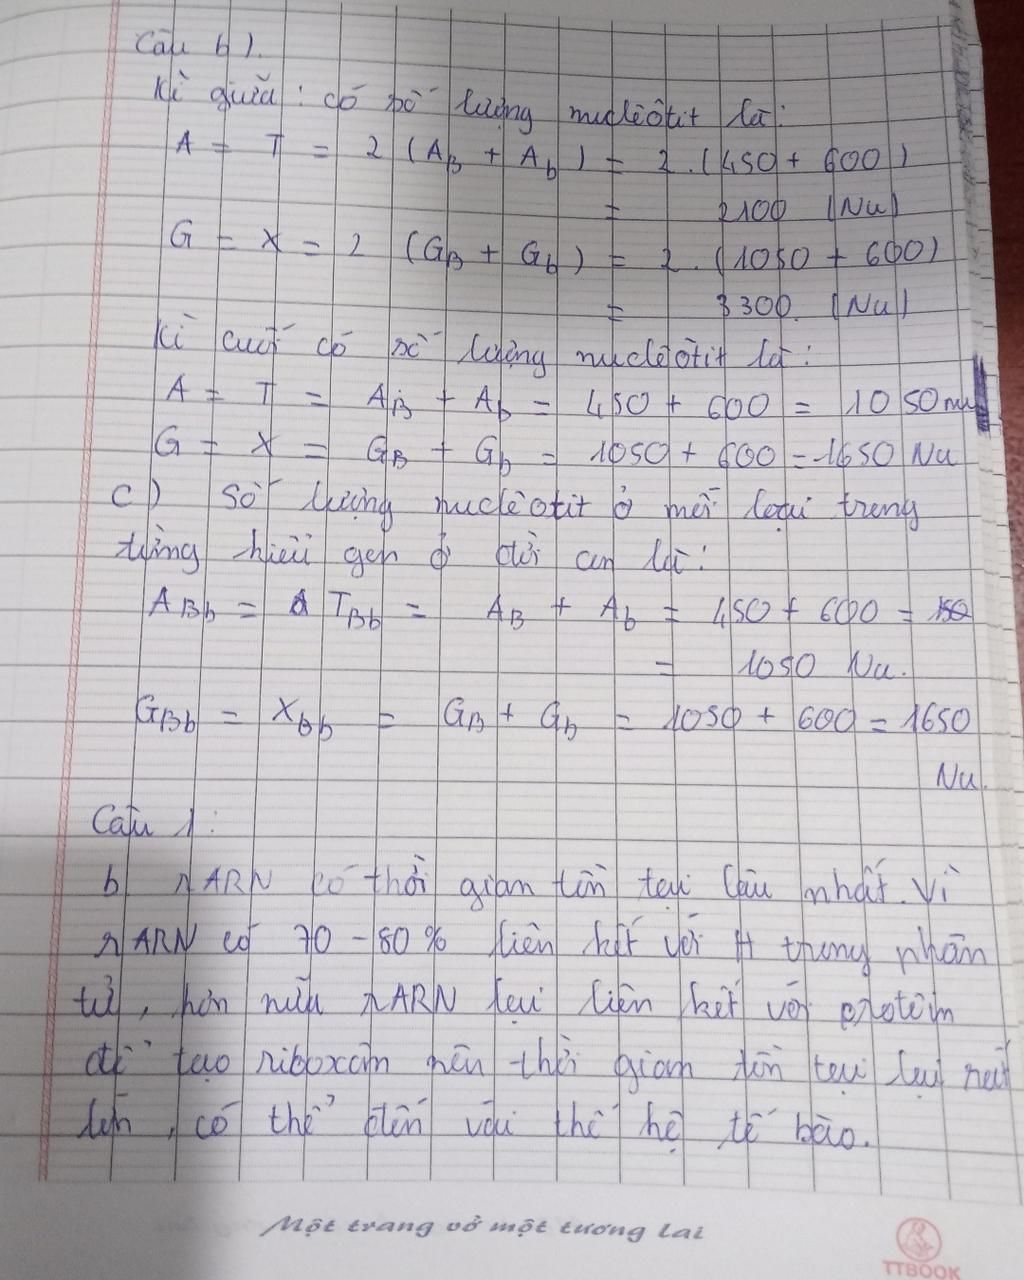 Câu b).
Kì giữa: có số lượng nuclêôtit là:
A = T = 2 (A_B + A_b) = 2.(450 + 600)
= 2100 (Nu)
G = X = 2 (G_B + G_b) = 2.(1050 + 600)
= 3300 (Nu)
Kì cuối có số lượng nuclêôtit là:
A = T = A_B + A_b = 450 + 600 = 1050 nu
G = X = G_B + G_b = 1050 + 600 = 1650 Nu
c) Số lượng nuclêôtit ở mỗi loại trong
từng kiểu gen ở đời con là:
A_Bb = T_Bb = A_B + A_b = 450 + 600 =
= 1050 Nu.
G_Bb = X_Bb = G_B + G_b = 1050 + 600 = 1650
Nu.
Câu 1:
b) rARN có thời gian tồn tại lâu nhất. Vì
rARN có 70 - 80% liên kết với H trong phân
tử, hơn nữa rARN lại liên kết với protêin
để tạo riboxom nên thời gian tồn tại lại rất
lớn, có thể đến vài thế hệ tế bào.
Một trang vở một tương lai
TTBOOK